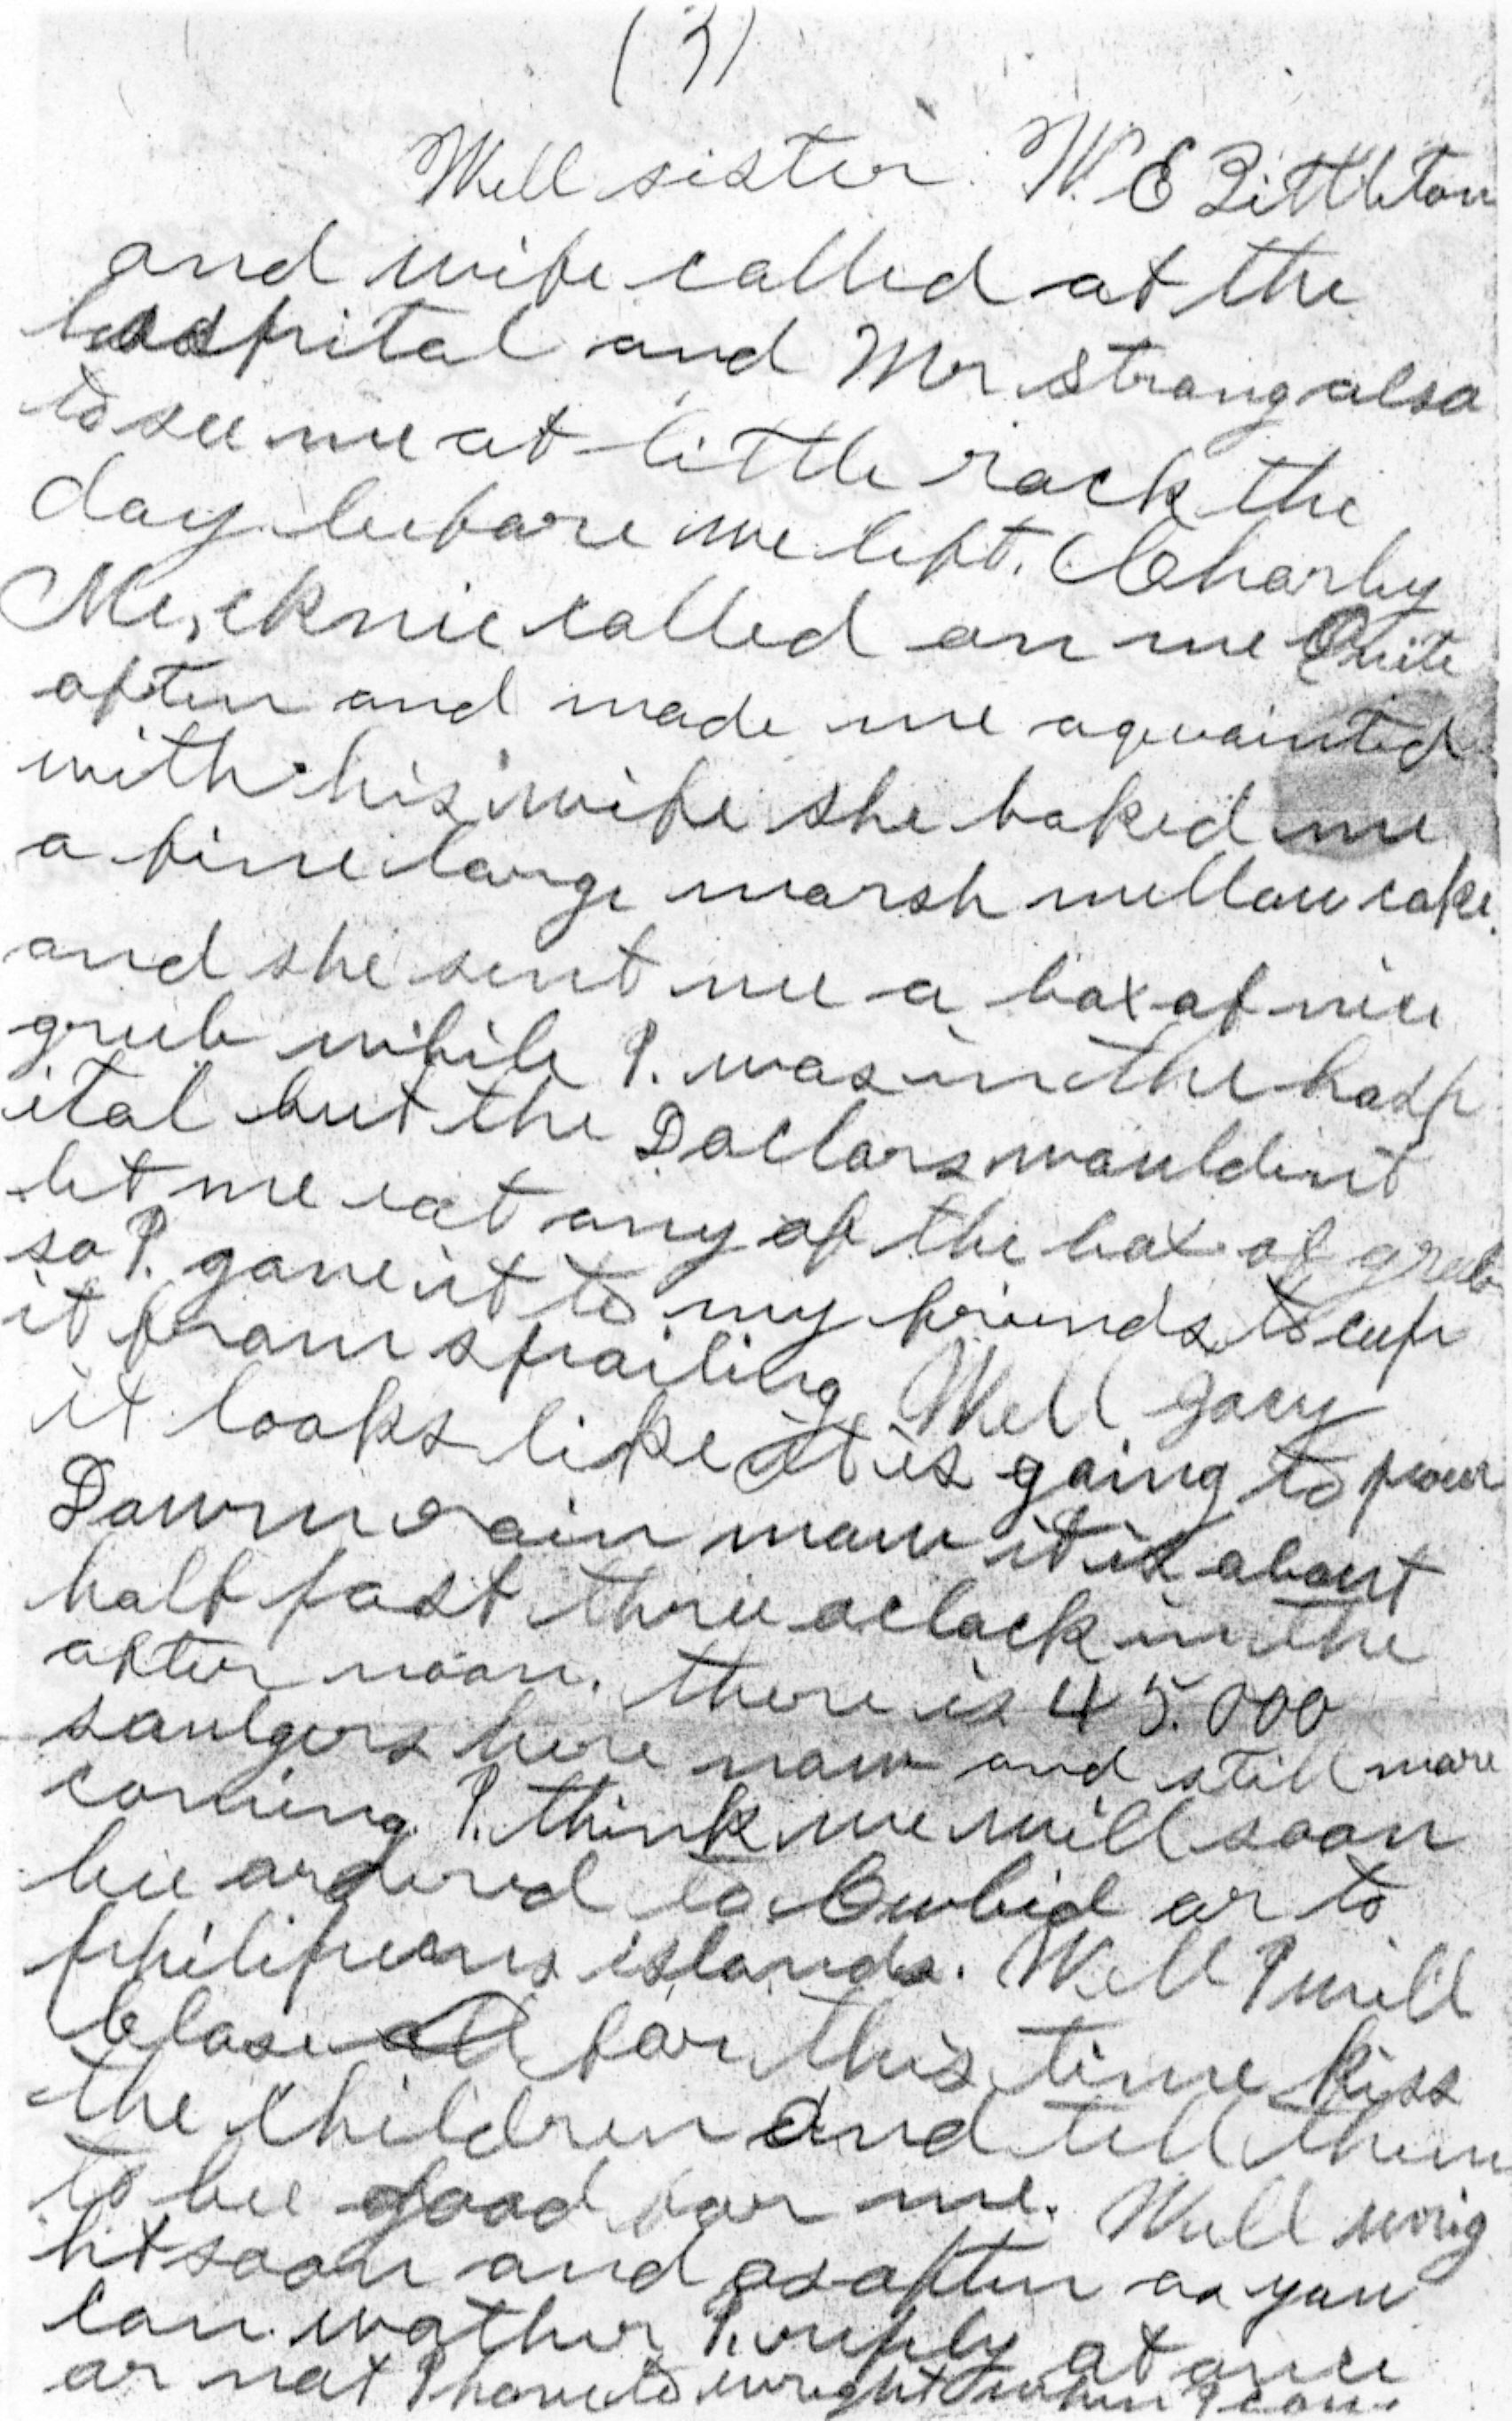 (3)
Well sister. W. E Littleton
and wife called at the
hosspital and Mr Strong also
to see me at little rock the
day beefore we left. Charley
called on me Quite
often and made me aquainted
with his wife she baked me
a fine large marsh mellow cake.
and she sent me a box of nice
grub while I. was in the hosp
ital but the Doctors wouldent
let me eat any of the box of grub
so I. gave it to my friends to eep
it from spoiling Well
it looks like it is going to pour
Down rain now it is about
half past three oclock in the
after noon. there is 45.000
soulgers here now and still more
coming. I. think we will soon
bee ordered to or to
islands. Well I will
Close all for this time kiss
the Children and tell them
to bee good for me. Well wrig
ht soon and as often as you
can wather I. reply at once
or not I have to wright when I can.